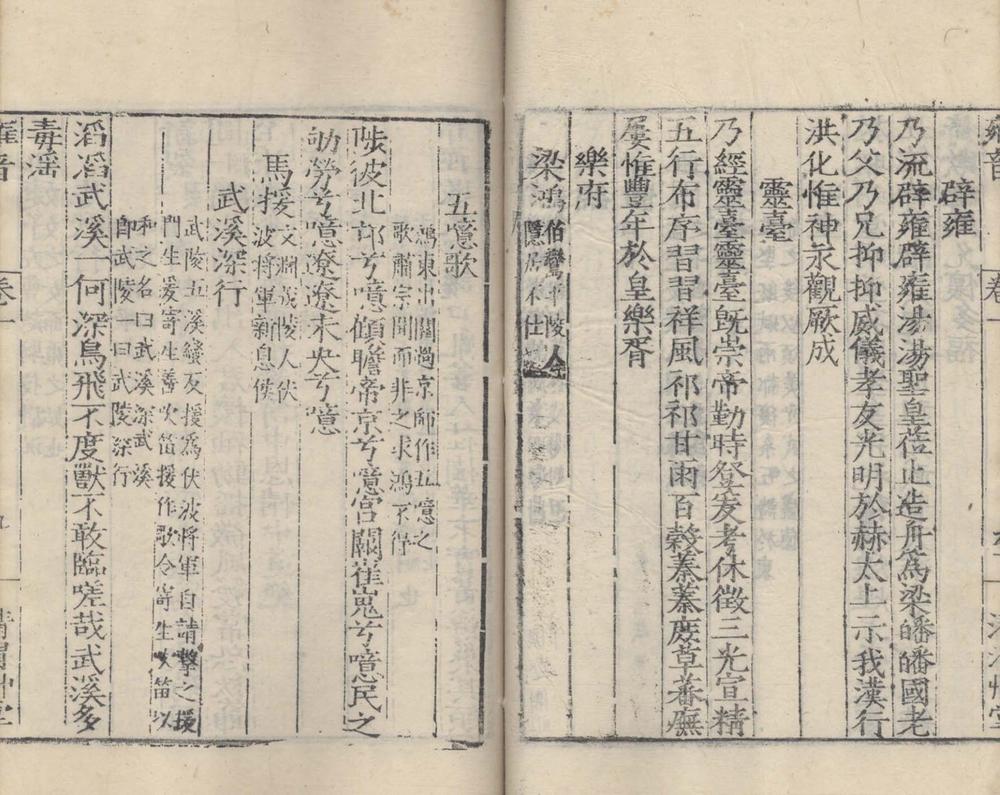 辟雍
乃流辟雍辟雍湯湯聖皇蒞止造舟爲梁皤皤國老
乃父乃兄抑抑威儀孝友光明於赫太上示我漢行
洪化惟神永觀厥成
靈臺
乃經靈臺靈臺旣崇帝勤時登爰考休徵三光宣精
五行布序習習祥風祁祁甘雨百穀蓁蓁庶草蕃廡
屢惟豐年於皇樂胥
樂府
梁鴻伯鸞平陵人
隱居不仕
五噫歌
鴻東出關過京師作五噫之
歌肅宗聞而非之求鴻不得
陟彼北邙兮噫顧瞻帝京兮噫宮闕崔嵬兮噫民之
劬勞兮噫遼遼未央兮噫
馬援文淵茂陵人伏
波將軍新息侯
武溪深行
武陵五溪蠻反援爲伏波將軍自請擊之援
門生爰寄生善吹笛援作歌令寄生吹笛以
和之名曰武溪深武溪
卽武陵一曰武陵深行
滔滔武溪一何深鳥飛不度獸不敢臨嗟哉武溪多
毒淫
雍音
卷一
九